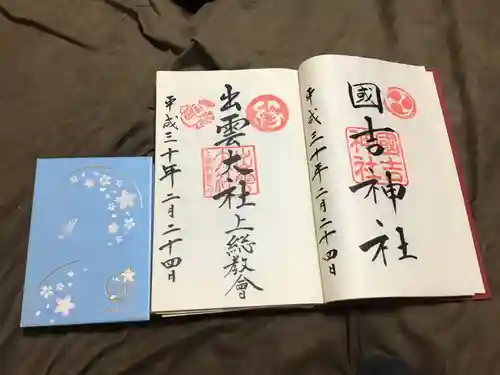 國吉神社
平成三十年二月二十四日
國吉神社
出雲大社上總教會
平成三十年二月二十四日